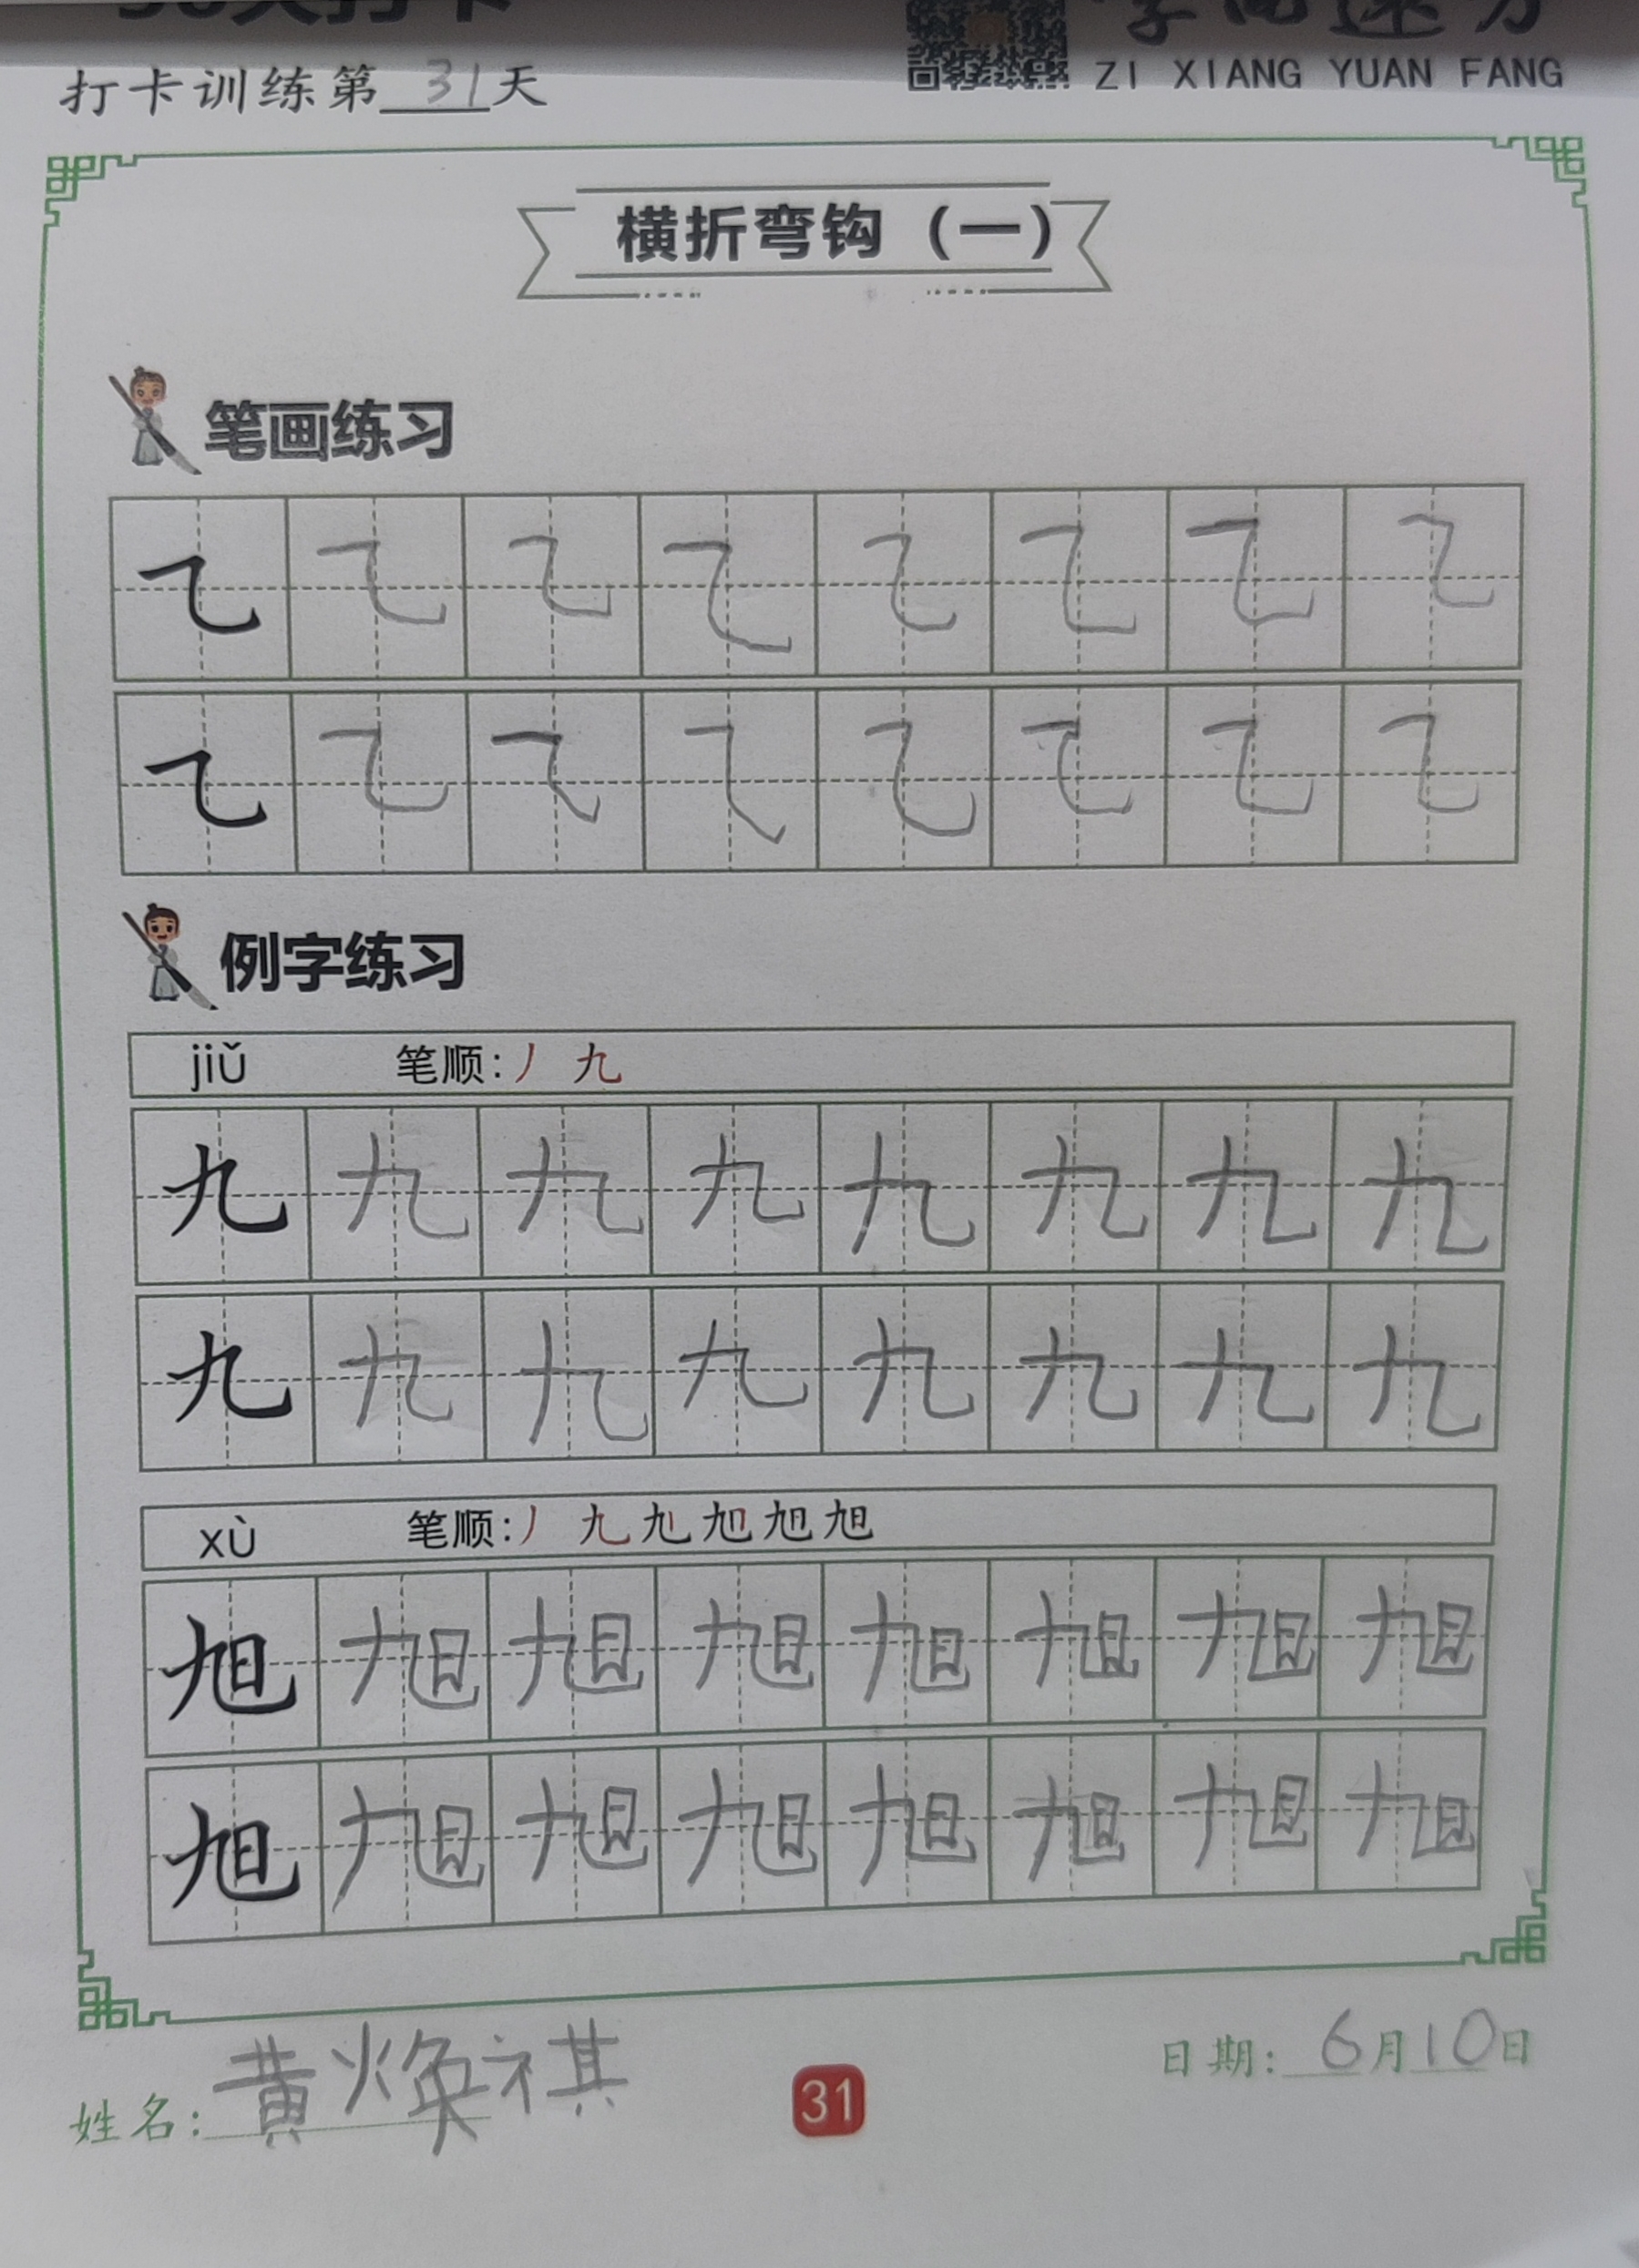 打卡训练第31天
ZI XIANG YUAN FANG
横折弯钩（一）
笔画练习
㇈ ㇈ ㇈ ㇈ ㇈ ㇈ ㇈ ㇈
㇈ ㇈ ㇈ ㇈ ㇈ ㇈ ㇈ ㇈
例字练习
jiǔ 笔顺：丿 九
九 九 九 九 九 九 九 九
九 九 九 九 九 九 九 九
xù 笔顺：丿 九 旭 旭 旭
旭 旭 旭 旭 旭 旭 旭 旭
旭 旭 旭 旭 旭 旭 旭 旭
姓名：黄焕祺
31
日期：6月10日